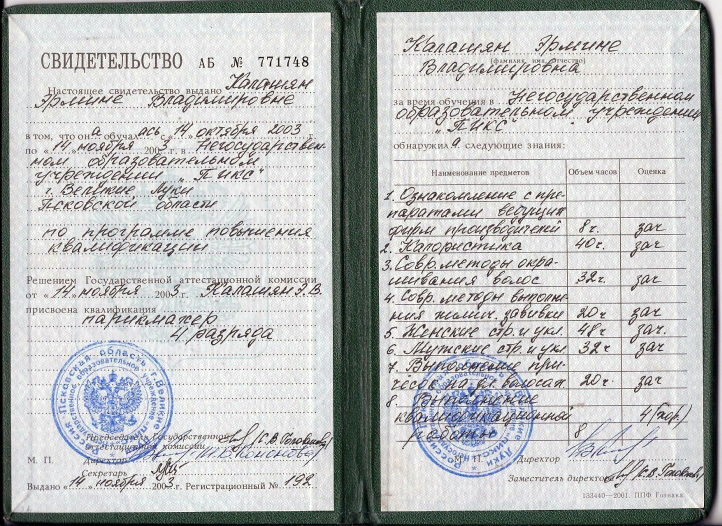 СВИДЕТЕЛЬСТВО АБ № 771748
Настоящее свидетельство выдано Калашян
Эрмине Владимировне
в том, что он а обучал ась „14" октября 2003 г.
по „14" ноября 2003 г. в Негосударствен-
ном образовательном
учреждении „Пикс"
г. Великие Луки
Псковской области
по программе повышения
квалификации
Решением Государственной аттестационной комиссии
от „14" ноября 2003 г. Калашян Э.В.
присвоена квалификация
парикмахер
4 разряда
Председатель Государственной
аттестационной комиссии
М. П. Директор
Секретарь
Выдано „14" ноября 2003 г. Регистрационный № 192
Калашян Эрмине
(фамилия, имя, отчество)
Владимировна
за время обучения в Негосударственном
образовательном учреждении
„Пикс"
обнаружил а следующие знания:
Наименование предметов Объем часов Оценка
1. Ознакомление с пре-
паратами ведущих
фирм производителей 8 ч. зач
2. Колористика 40 ч. зач
3. Совр. методы окра-
шивания волос 32 ч. зач
4. Совр. методы выполне-
ния химич. завивки 20 ч зач
5. Женские стр. и укл. 48 ч зач.
6. Мужские стр. и укл 32 ч зач
7. Выполнение при-
чёсок на дл. волосах 20 ч. зач
8. Выполнение
квалификационной 4 (хор)
работы 8
М. П. Директор
Заместитель директора
133440—2001. ППФ Гознака.